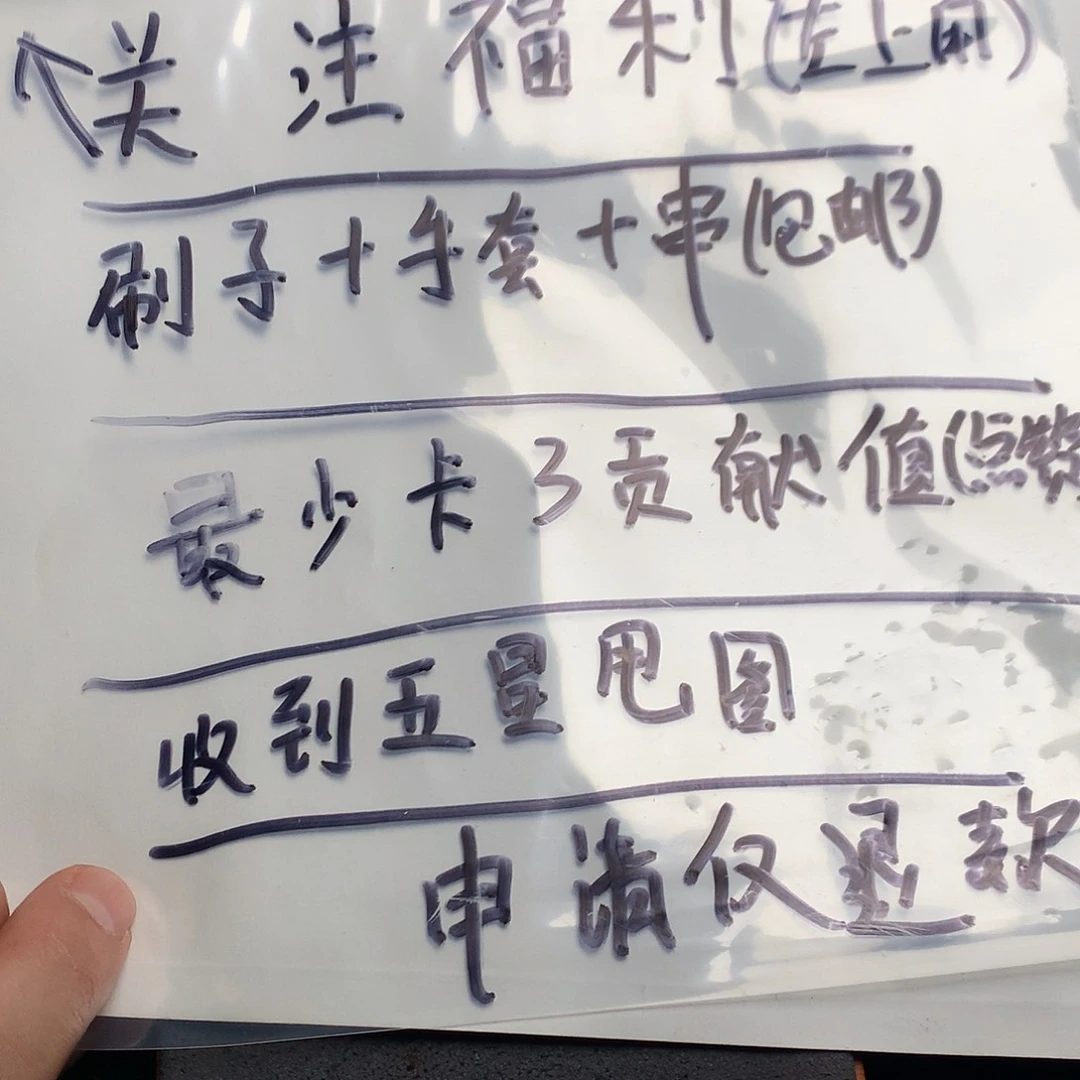 ↖关注福利(左上角)
刷子+手套+串(包邮)
最少卡3贡献值(点数
收到五星甩图
申请仅退款